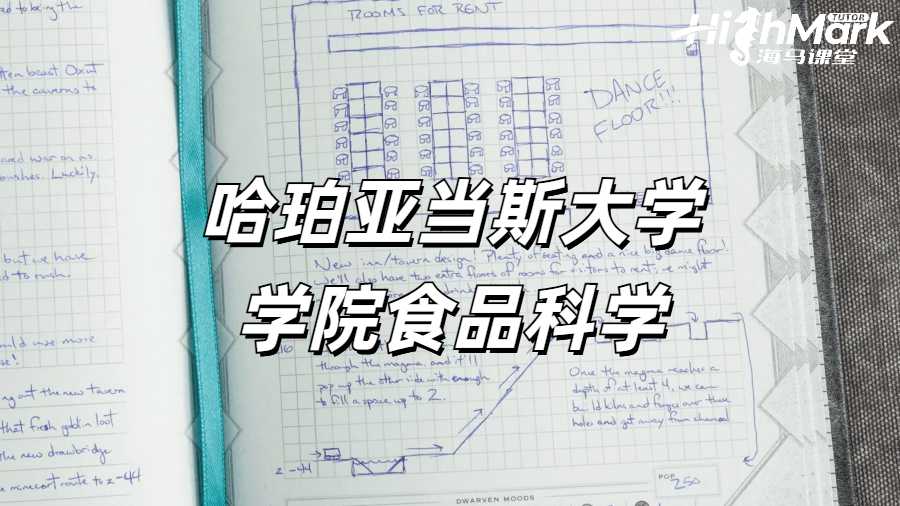 ed to being the
ROOMS FOR RENT
HighMark
TUTOR
海马课堂
the caverns to
DANCE
FLOOR!!!
Luckily.
哈珀亚当斯大学
but we have
d to rush.
New inn/tavern design! Plenty of seating and a nice big dance floor!
We'll also have two extra floors of rooms for visitors to rent, we might
学院食品科学
ould use more
through the magma, and it'll
pop up the other side with enough
to fill a space up to 2.
Once the magma reaches a
depth of at least 4, we can
build kilns and forges over these
holes and get away from charcoal
ng at the new tavern
that fresh goblin loot
the new drawbridge
minecart route to z-44
z -44
DWARVEN MOODS
POP
250